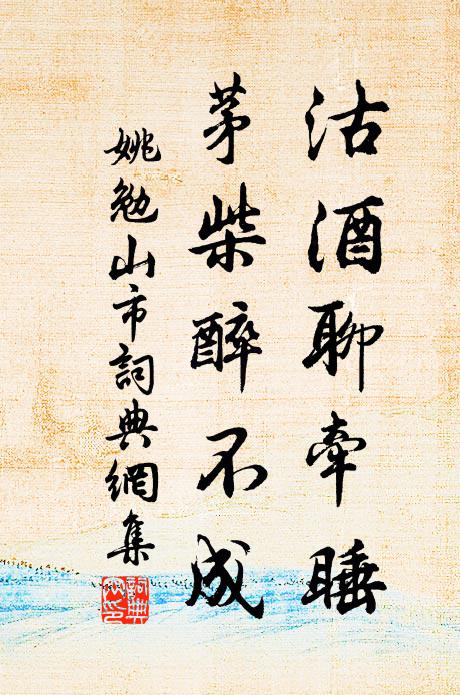 沽酒聊牽睡
茅柴醉不成
姚勉山市詞典網集